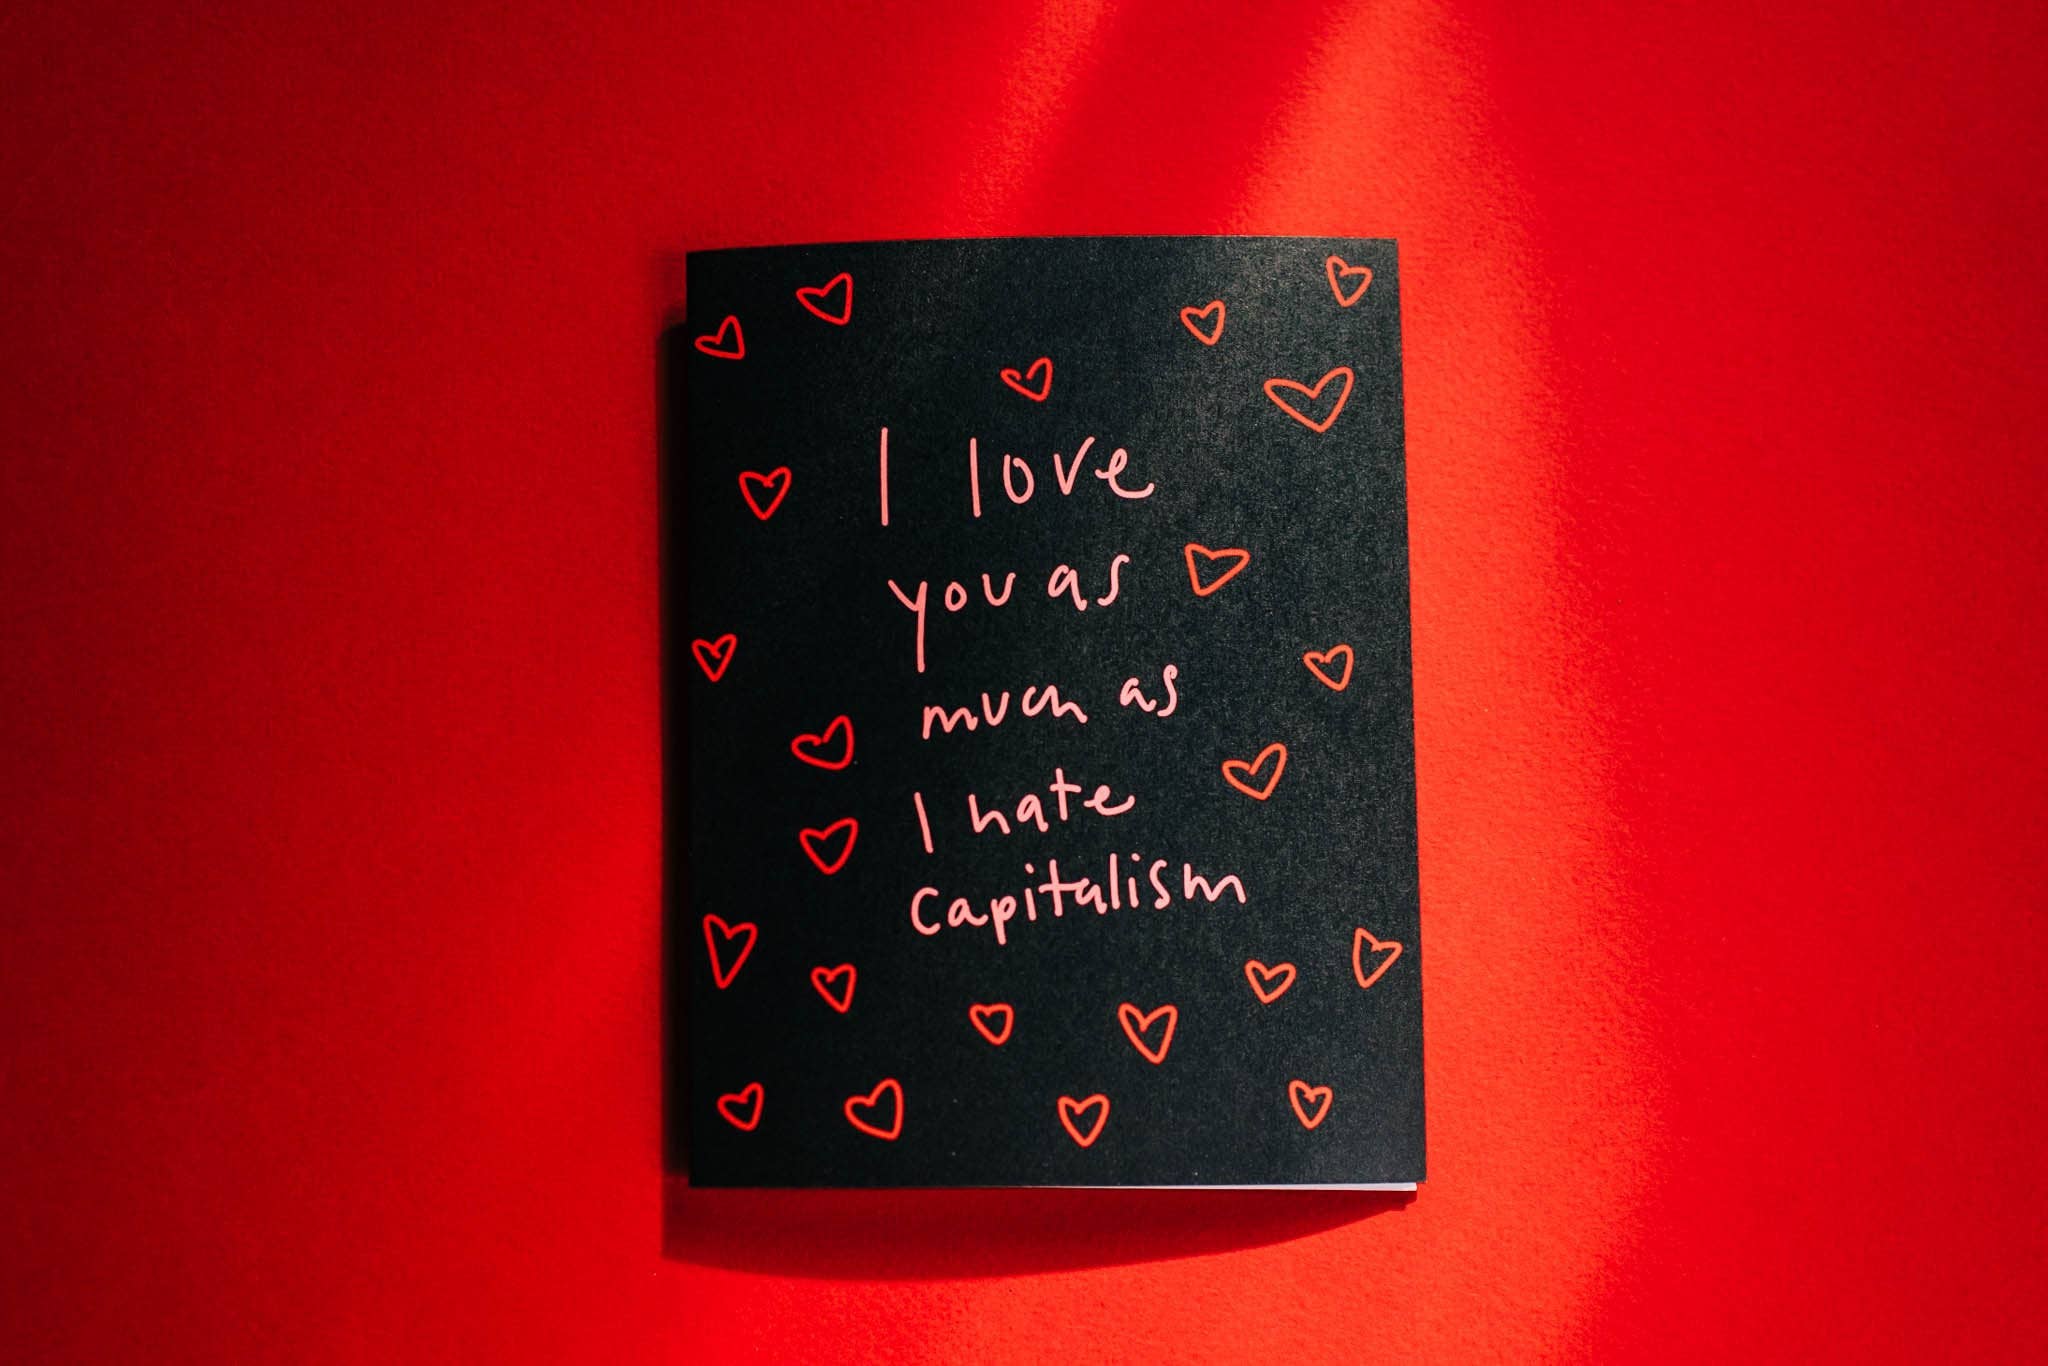 I love
you as
much as
I hate
Capitalism